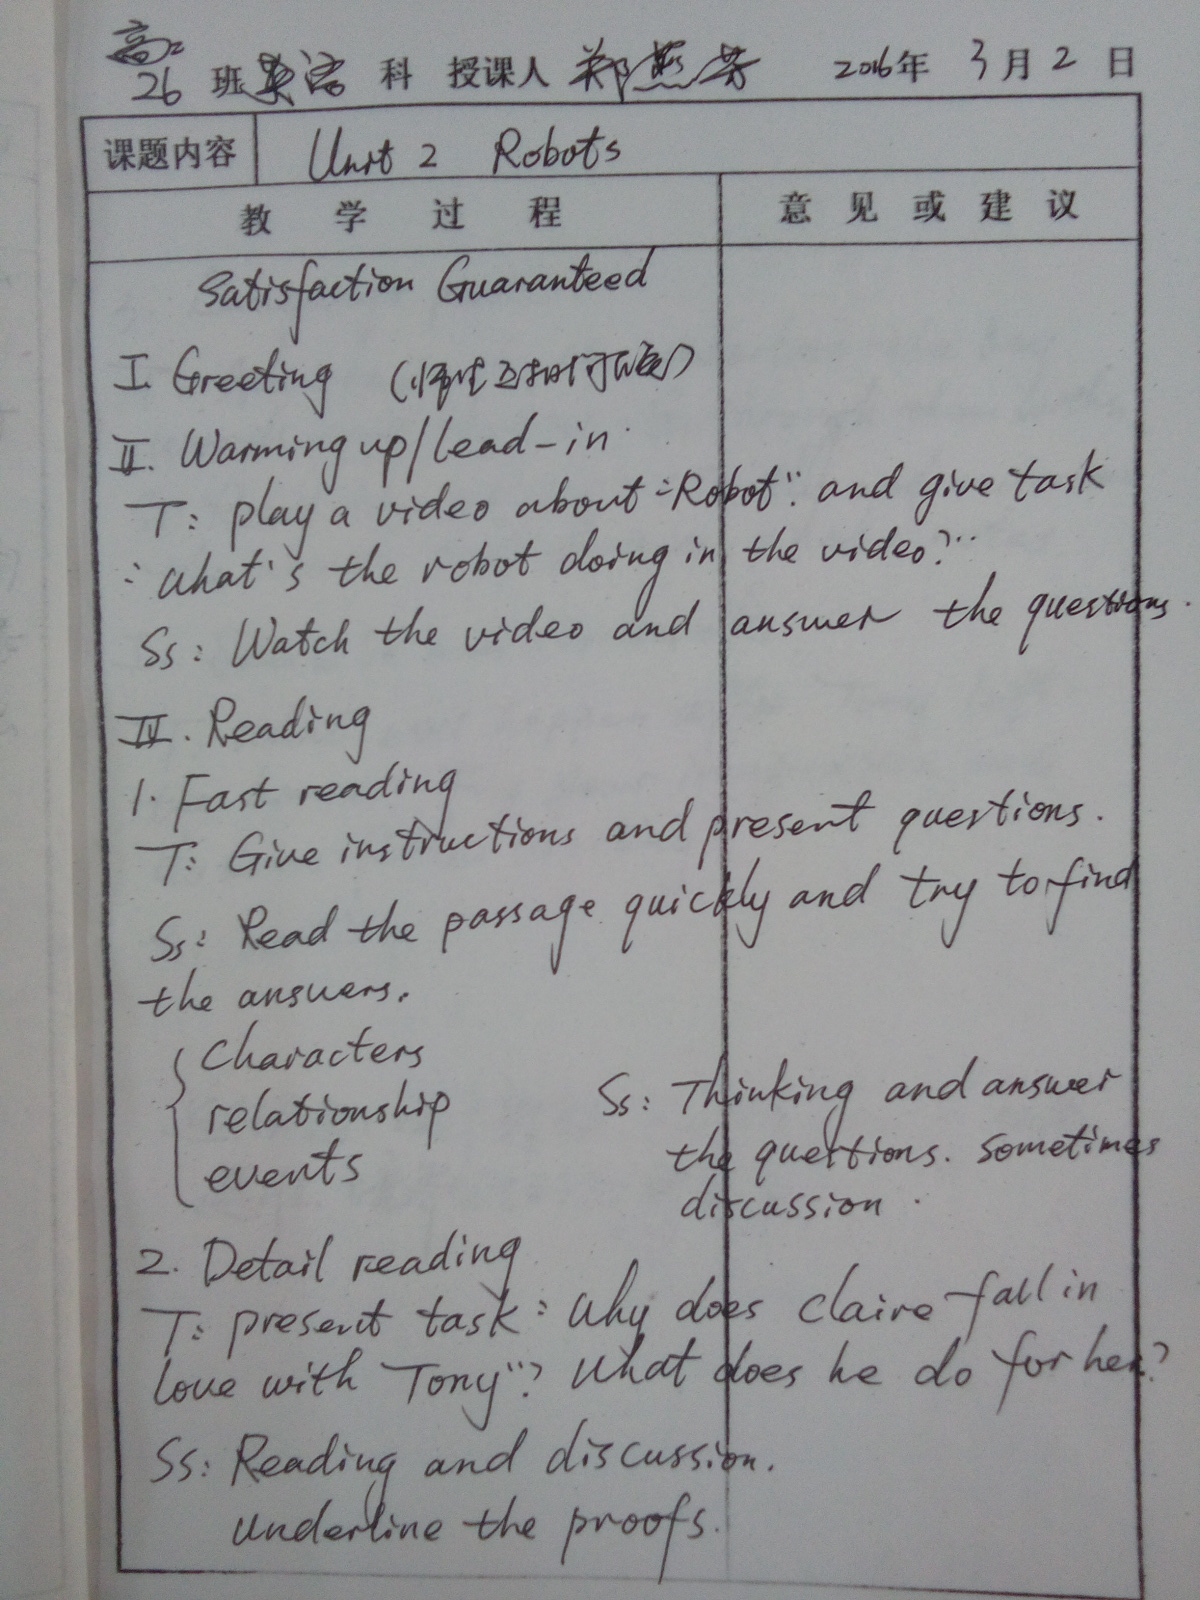 高二
26 班 英语 科 授课人 郑燕芳 2016年 3月 2日
课题内容 Unit 2 Robots
教学过程 意见或建议
Satisfaction Guaranteed
I. Greeting
II. Warming up/lead-in
T: play a video about "Robot". and give task
: what's the robot doing in the video?"
Ss: Watch the video and answer the questions.
IV. Reading
1. Fast reading
T: Give instructions and present questions.
Ss: Read the passage quickly and try to find
the answers.
characters
relationship
events
Ss: Thinking and answer
the questions. sometimes
discussion.
2. Detail reading
T: present task: why does claire fall in
love with Tony"? what does he do for her?
Ss: Reading and discussion.
underline the proofs.